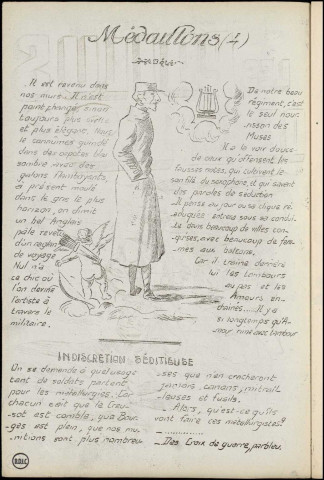 Médaillons (4)
Il est revenu dans
nos murs. Il n'est
point changé, à mon
toujours plus
et plus élégant. Nous
le connûmes guindé
dans des capotes bleu
sombre avec des
galons flamboyants,
à présent moulé
dans le gris le plus
horizon, on dirait
un bel Anglais
pâle revenu
d'un
de voyage
Nul n'a
ce chic où
l'on devine
l'artiste à
travers le
militaire.
De notre beau
régiment, c'est
le seul nour-
risson des
Muses
Il a la voix douce
de ceux qu'offensent les
fausses notes, qui cultivent le
gentil saxophone, et qui savent
des paroles de séduction
Il passe au jour où sa clique ré-
entrera sous sa condui-
te dans beaucoup de villes con-
quises, avec beaucoup de fem-
mes aux balcons,
Car il traîne derrière
lui les tambours
au pas et les
Amours en-
chaînés... Il y a
si longtemps qu'A-
mour rime avec tambour
INDISCRÉTION SÉDITIEUSE
On se demande à quel usage
tant de soldats partent
pour les métallurgies. Car
chacun sait que le Creu-
sot est comble, que Bour-
ges est plein, que nos mu-
nitions sont plus nombreu-
-ses que n'en cracheront
jamais canons, mitrail-
leuses et fusils.
- Alors, qu'est-ce qu'ils
vont faire ces métallurgistes?
- Des Croix de guerre, parbleu.
B.D.I.C